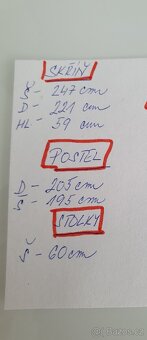 SKŘÍŇ
Š - 247 cm
D - 221 cm
HL - 59 cm
POSTEL
D - 205 cm
Š - 195 cm
STOLKY
Š - 60 cm
Bazoš.cz